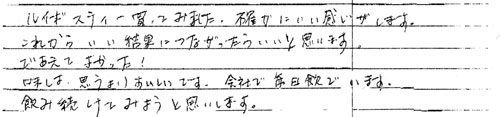 ルイボスティー買ってみました。確かにいい感じがします。
これからいい結果につながったらいいと思います。
であえてよかった！
味も思うよりおいしいです。会社で毎日飲んでいます。
飲み続けてみようと思いします。